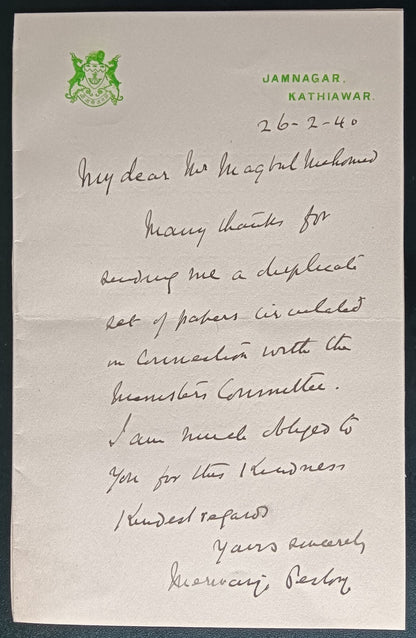 JAMNAGAR,
KATHIAWAR.
26-2-40
My dear Mr Maqbul Mahomed
Many thanks for
sending me a duplicate
set of papers circulated
in connection with the
Ministers Committee.
I am much obliged to
you for this kindness
Kindest regards
Yours sincerely
Merwanji